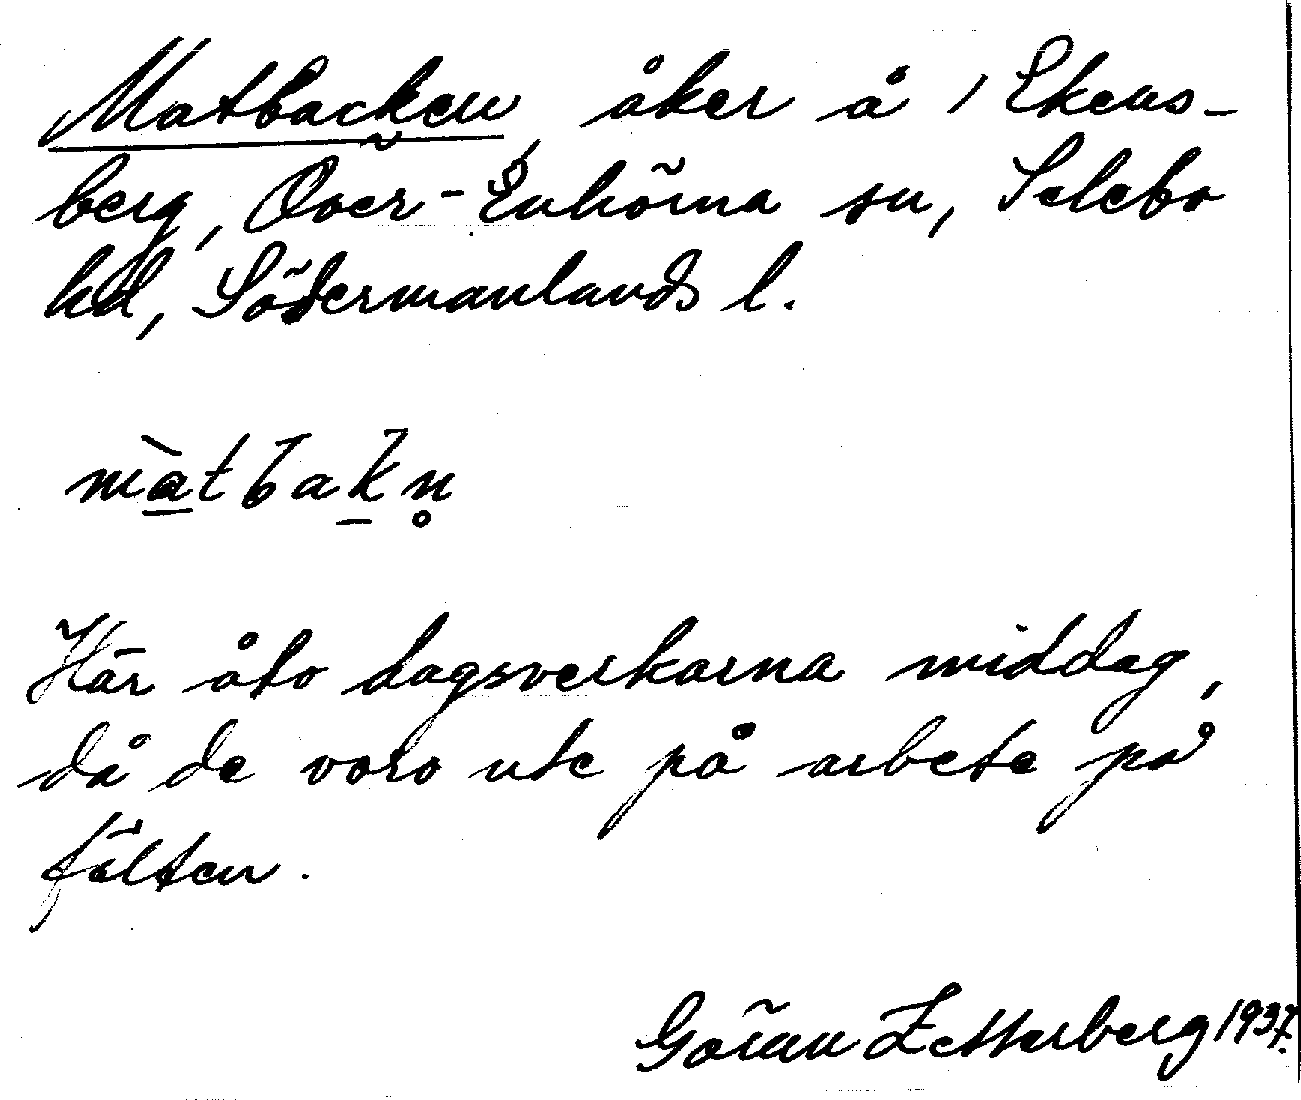 Matbacken, åker å 1 Ekens-
berg, Över-Enhörna sn, Selebo
hd, Södermanlands l.
màtbakn̥
Här åto dagsverkarna middag,
då de voro ute på arbete på
fälten.
Göran Zetterberg 1937.